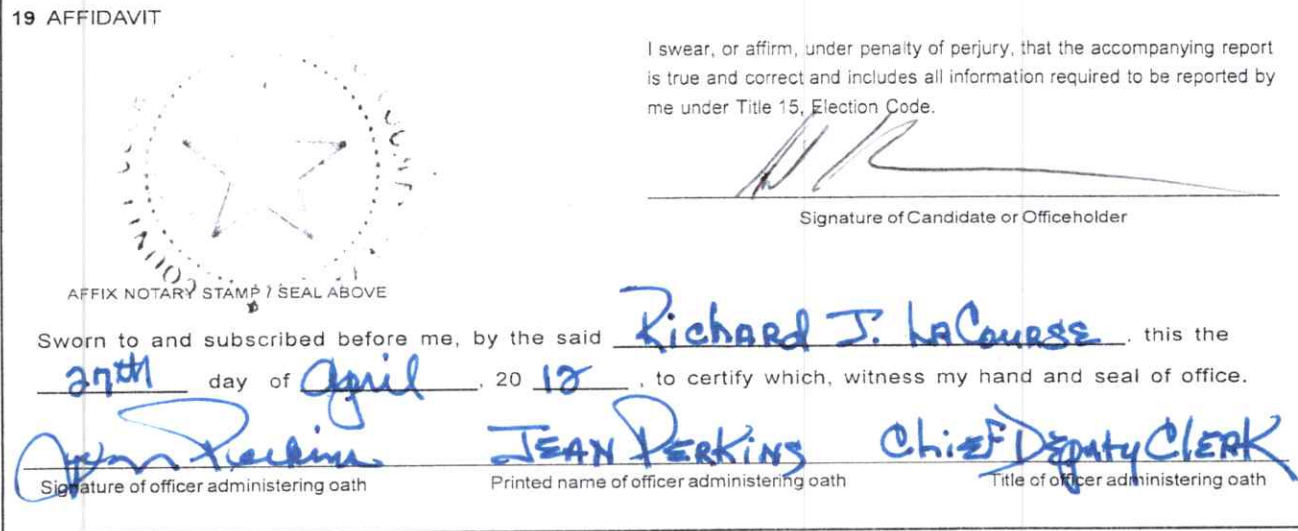 19 AFFIDAVIT
I swear, or affirm, under penalty of perjury, that the accompanying report
is true and correct and includes all information required to be reported by
me under Title 15, Election Code.
Signature of Candidate or Officeholder
AFFIX NOTARY STAMP / SEAL ABOVE
Sworn to and subscribed before me, by the said Richard J. LaCourse, this the
27th day of April, 20 12, to certify which, witness my hand and seal of office.
Jean Perkins JEAN PERKINS Chief Deputy CLERK
Signature of officer administering oath Printed name of officer administering oath Title of officer administering oath